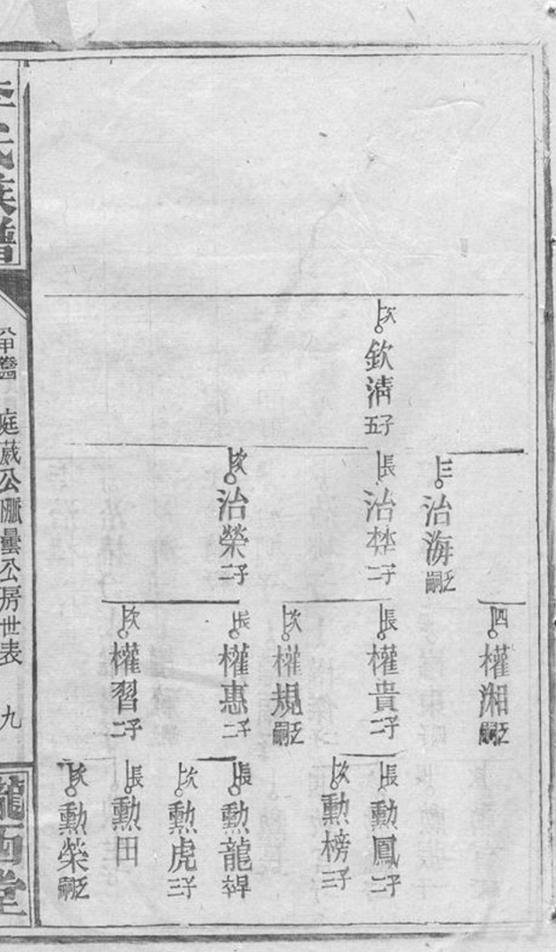 次 欽清 五子
三 治海 乏嗣
長 治㭟 二子
次 治榮 二子
四 權湘 乏嗣
長 權貴 二子
次 權規 乏嗣
長 權惠 二子
次 權習 二子
長 勲鳳 二子
次 勲榜 三子
長 勲龍
次 勲虎 三子
長 勲田
次 勲榮 乏嗣
李氏族譜
庭葳公脈曇公房世表
九
隴西堂